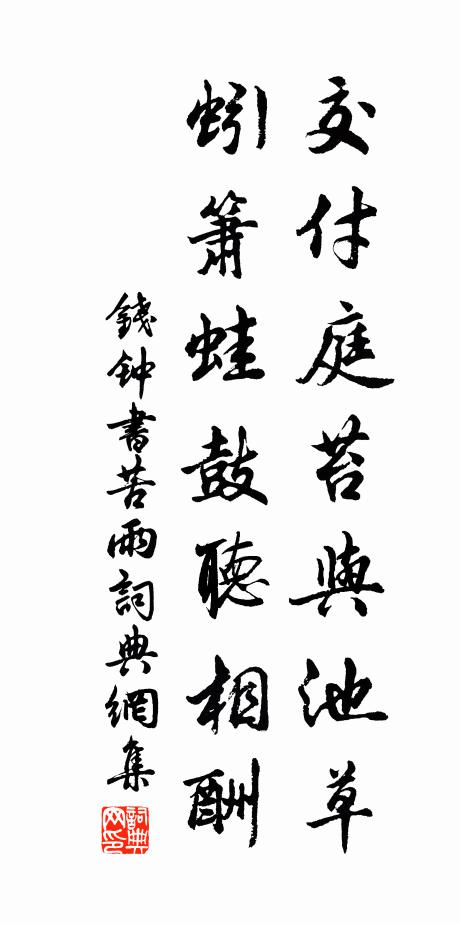 交付庭苔與池草
蚓簫蛙鼓聽相酬
錢鍾書苦雨詞典網集
詞典
网印